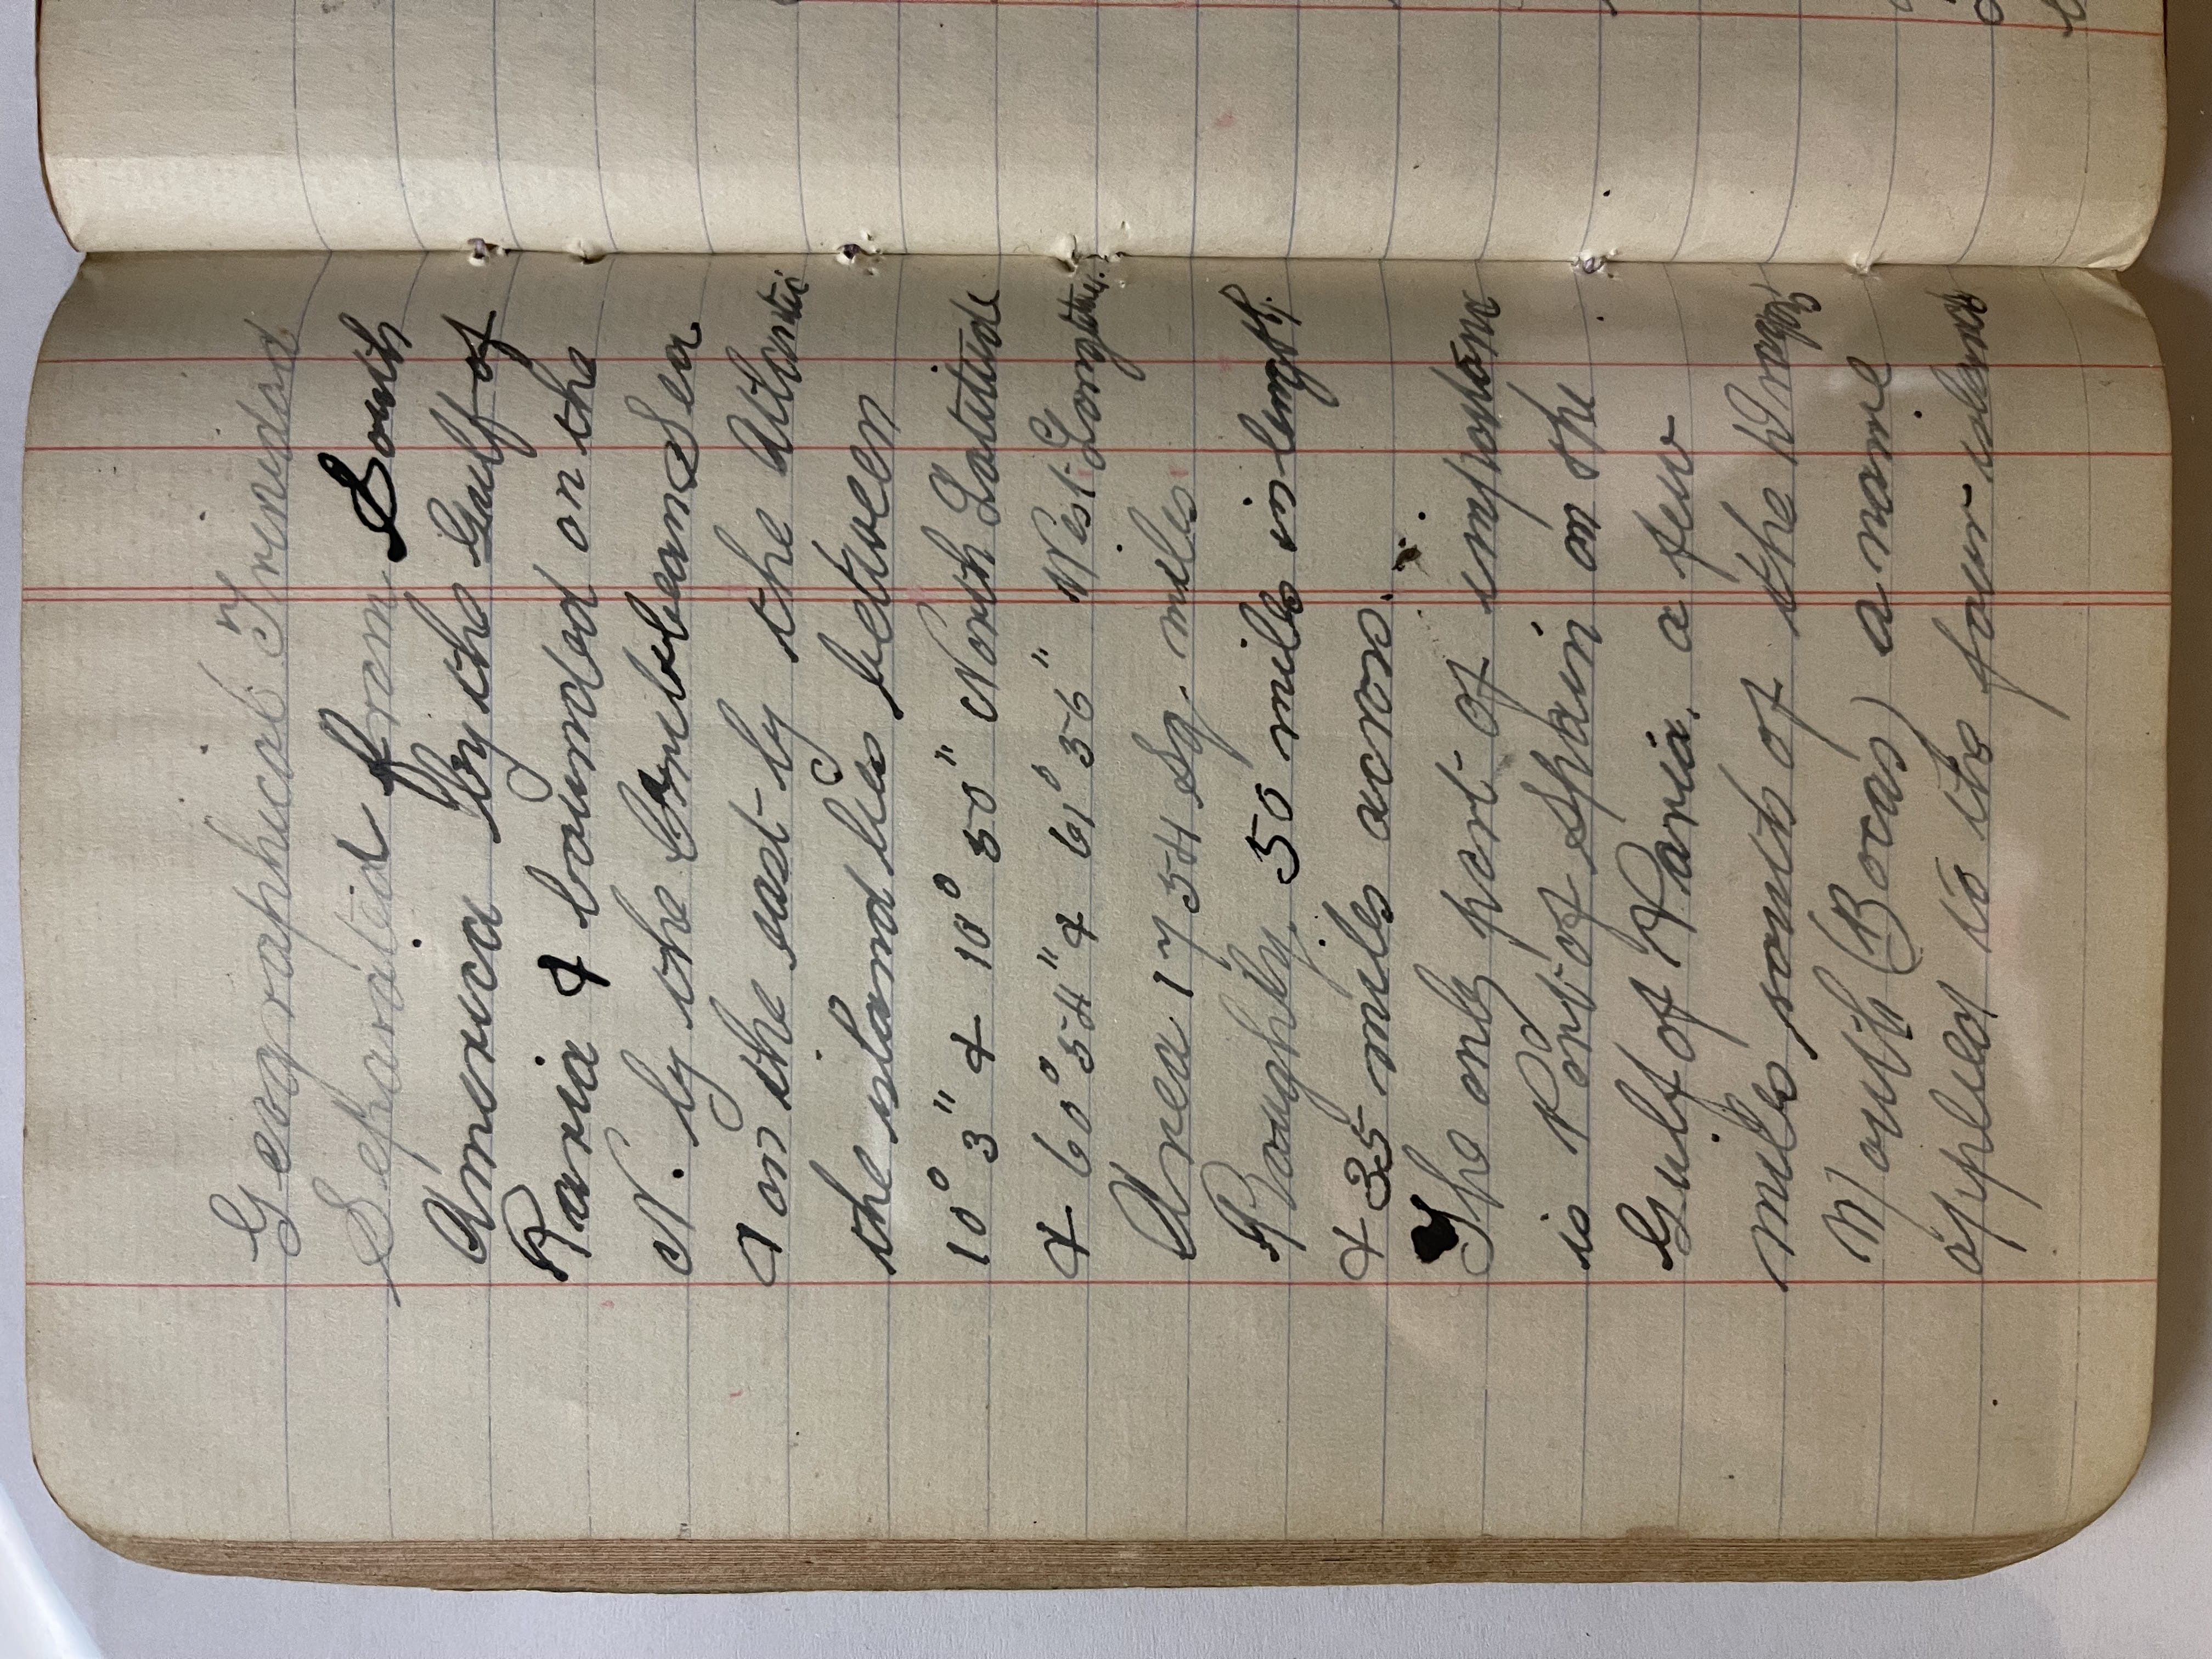 Geographical Trinidad
Separated from South
America by the Gulf of
Paria & bounded on the
N. by the Carribbean Sea
& on the east by the Atlantic
the island lies between
10° 3" & 10° 50" North Latitude
& 60° 54" & 61° 56" West Longitude.
Area 1754 Sq. miles
Roughly. 50 miles in length.
& 35 miles across.
The only port of importance
is Port of Spain on the
Gulf of Paria, a few
miles south of the Dragon's
Mouth (Bocas) a name
applied to the four islands